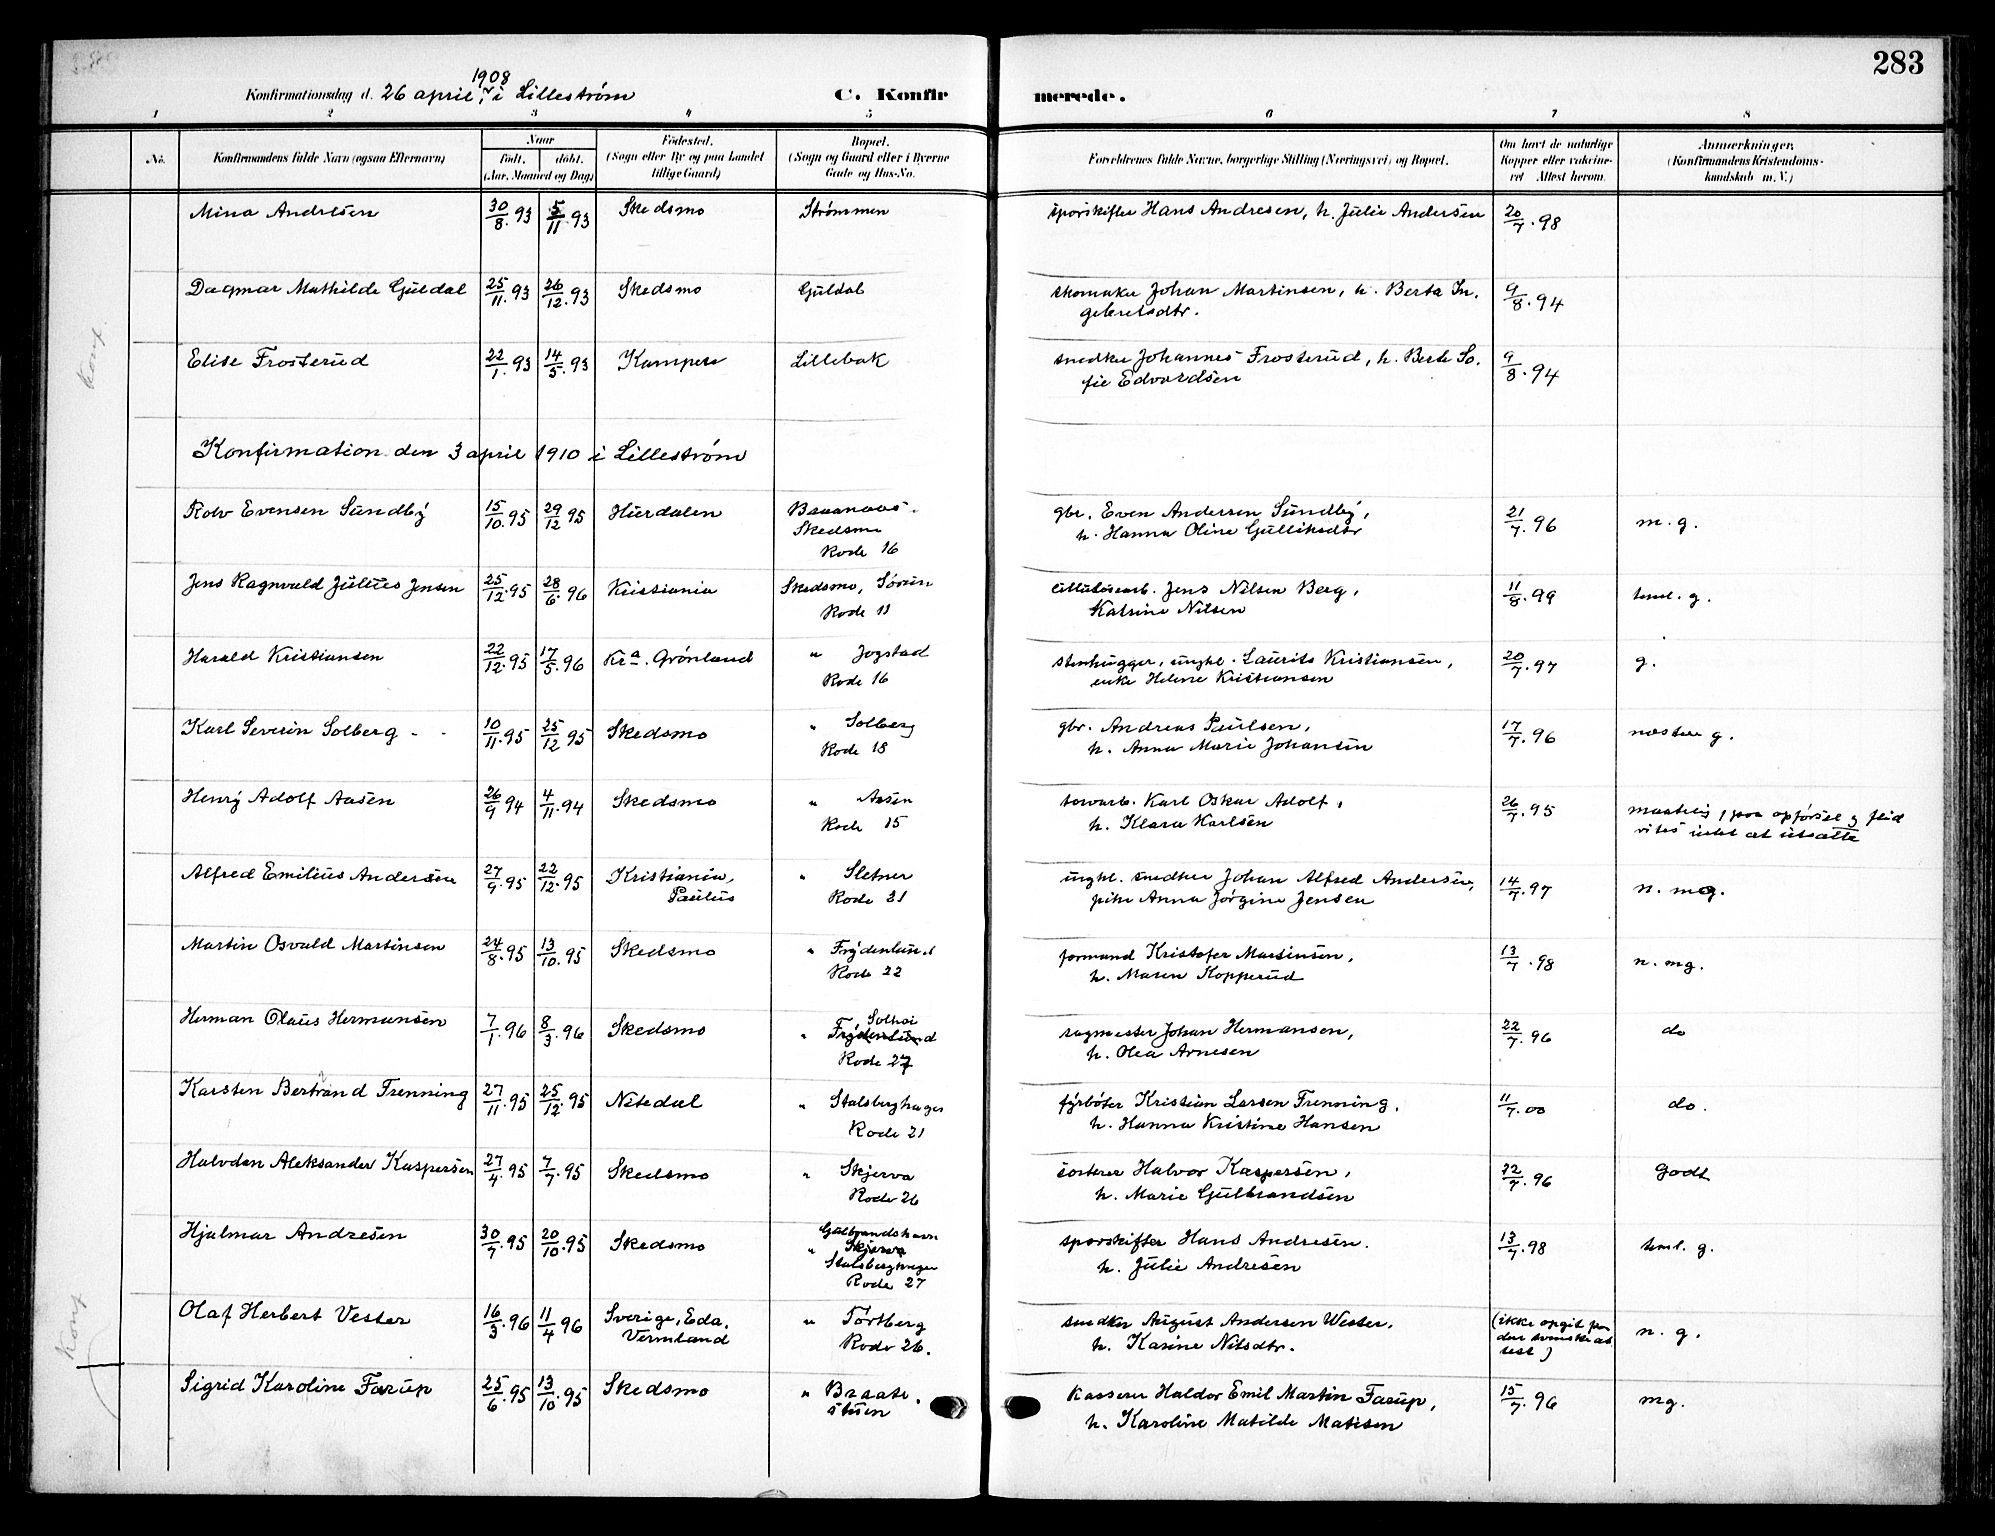 283
1908
Konfirmationsdag d. 26 april, i Lillestrøm
C. Konfir
merede.
1 2 3 4 5 6 7 8
No.
Konfirmandens fulde Navn (ogsaa Efternavn)
Naar
født. døbt.
(Aar, Maaned og Dag)
Fødested.
(Sogn eller By og paa Landet
tillige Gaard)
Bopæl.
(Sogn og Gaard eller i Byerne
Gade og Hus-No.
Forældrenes fulde Navne, borgerlige Stilling (Næringsvei) og Bopæl.
Om havt de naturlige
Kopper eller vakcine-
ret Attest herom.
Anmærkninger,
(Konfirmandens Kristendoms-
kundskab m. V.)
Mina Andresen 30/8.93 5/11.93 Skedsmo Strømmen sporskifter Hans Andresen, h. Julie Andersen 20/7.98
Dagmar Mathilde Guldal 25/11.93 26/12.93 Skedsmo Guldal skomaker Johan Martinsen, h. Berta In. 9/8.94
gebretsdtr.
Elise Frosterud 22/1.93 14/5.93 Kampen Lillebak snedker Johannes Frosterud, h. Berte So. 9/8.94
fie Edvardsen
Konfirmation den 3 april 1910 i Lillestrøm
Rolv Evensen Sundby 15/10.95 29/12.95 Hurdalen gbr. Even Andersen Sundby, 21/7.96 m.g.
Skedsmo h. Hanna Oline Gulliksdtr
Rode 16
Jens Ragnvald Julius Jensen 25/12.95 28/6.96 Kristiania Skedsmo, Jens Nilsen Berg, 11/8.99 teml. g.
Rode 11 Katrine Nilsen
Harald Kristiansen 22/12.95 17/5.96 Kra. Grønland " Jogstad stenhugger, ungk. Laurits Kristiansen, 20/7.97 g.
Rode 16 enke Helene Kristiansen
Karl Severin Solberg 10/11.95 25/12.95 Skedsmo " Solberg gbr. Andreas Paulsen, 17/7.96 næsten g.
Rode 18 h. Anna Marie Johansen
Henry Adolf Aasen 26/9.94 4/11.94 Skedsmo " Aasen Karl Oskar Adolf, 26/7.95 maatelig, paa opførsel og flid
Rode 15 h. Klara Karlsen vites intet at utsætte
Alfred Emilius Andersen 27/9.95 22/12.95 Kristiania, " Sletner ungk. snedker Johan Alfred Andersen, 14/7.97 n. mg.
Paulus Rode 21 pike Anna Jørgine Jensen
Martin Osvald Martinsen 24/8.95 13/10.95 Skedsmo " Frydenlund formand Kristofer Martinsen, 13/7.98 n. mg.
Rode 22 h. Maren Kopperud
Herman Olaus Hermansen 7/1.96 8/3.96 Skedsmo Solhøi sagmester Johan Hermansen, 22/7.96 do
" Frydenlund h. Olea Arnesen
Rode 27
Karsten Bertrand Trenning 27/11.95 25/12.95 Nitedal " Stalsberghagen fyrbøter Kristian Larsen Trenning, 11/7.00 do.
Rode 21 h. Hanna Kristine Hansen
Halvdan Aleksander Kaspersen 27/4.95 7/7.95 Skedsmo " Skjerva sorterer Halvor Kaspersen, 22/7.96 godt
Rode 26 h. Marie Gulbrandsen
Hjalmar Andresen 30/7.95 20/10.95 Skedsmo Gulbrandshavn sporskifter Hans Andresen. 13/7.98 teml. g.
" Skjerva h. Julie Andresen
Stalsberghagen
Rode 27
Olaf Herbert Vester 16/3.96 11/4.96 Sverige, Eda, " Tortberg snedker August Andersen Wester, (ikke opgit paa n. g.
Vermland Rode 26. h. Karine Nilsdtr. den svenske at
test)
Sigrid Karoline Farup 25/6.95 13/10.95 Skedsmo " Braate. kasserer Haldor Emil Martin Farup, 15/7.96 mg.
stuen h. Karoline Matilde Matisen